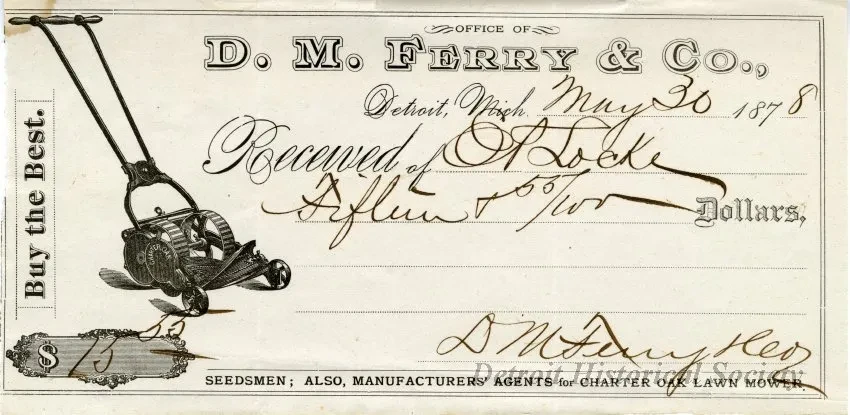 OFFICE OF
D. M. FERRY & CO.,
Detroit, Mich. May 30 1878
Received of O A Locke
Fifteen & 55/100 Dollars,
Buy the Best.
$ 15 55
D M Ferry & Co
Detroit Historical Society
SEEDSMEN; ALSO, MANUFACTURERS' AGENTS for CHARTER OAK LAWN MOWER.